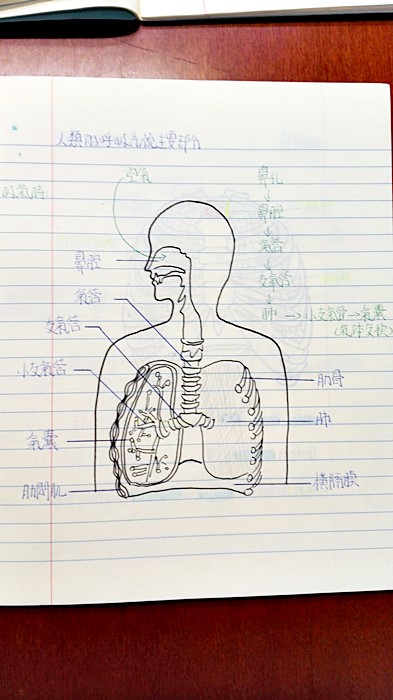 人類的呼吸系統主要部分
空氣
吸氣時
鼻孔
↓
鼻腔
↓
氣管
↓
支氣管
↓
肺 → 小支氣管 → 氣囊
(氣体交換)
鼻腔
氣管
支氣管
小支氣管
氣囊
肋間肌
肋骨
肺
橫膈膜